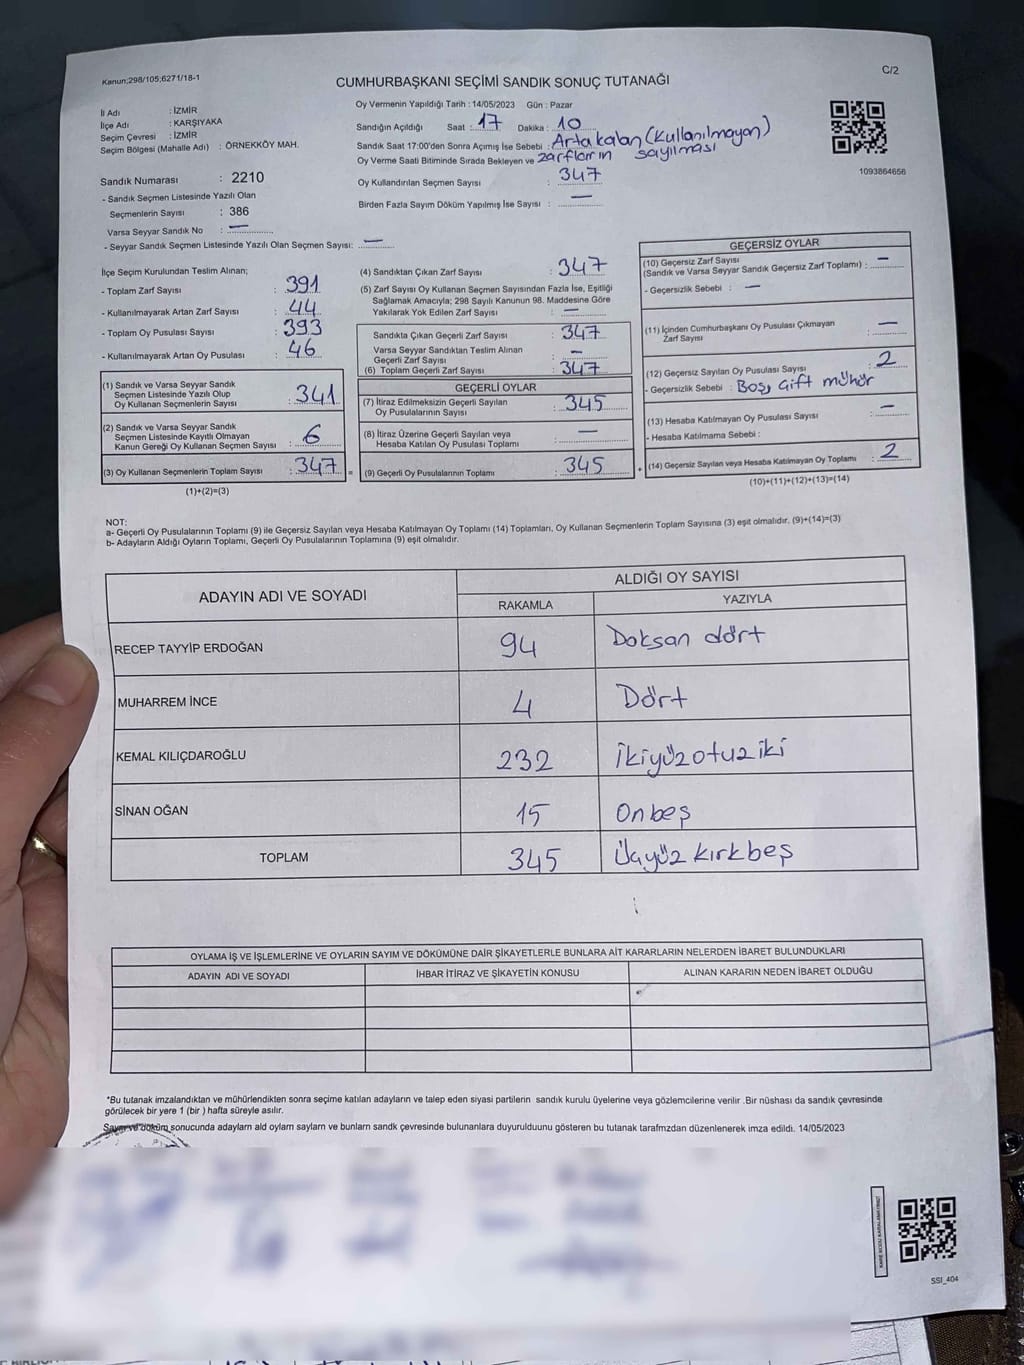 Kanun;298/105;6271/18-1
C/2
CUMHURBAŞKANI SEÇİMİ SANDIK SONUÇ TUTANAĞI
İl Adı : İZMİR
İlçe Adı : KARŞIYAKA
Seçim Çevresi : İZMİR
Seçim Bölgesi (Mahalle Adı) : ÖRNEKKÖY MAH.
Sandık Numarası : 2210
- Sandık Seçmen Listesinde Yazılı Olan
Seçmenlerin Sayısı : 386
Varsa Seyyar Sandık No : —
- Seyyar Sandık Seçmen Listesinde Yazılı Olan Seçmen Sayısı: —
Oy Vermenin Yapıldığı Tarih : 14/05/2023 Gün : Pazar
Sandığın Açıldığı Saat : 17 Dakika : 10
Sandık Saat 17:00'den Sonra Açımış İse Sebebi : Arta kalan (kullanılmayan)
Oy Verme Saati Bitiminde Sırada Bekleyen ve zarfların sayılması
Oy Kullandırılan Seçmen Sayısı : 347
Birden Fazla Sayım Döküm Yapılmış İse Sayısı : —
1093864656
İlçe Seçim Kurulundan Teslim Alınan;
- Toplam Zarf Sayısı : 391
- Kullanılmayarak Artan Zarf Sayısı : 44
- Toplam Oy Pusulası Sayısı : 393
- Kullanılmayarak Artan Oy Pusulası : 46
(1) Sandık ve Varsa Seyyar Sandık
Seçmen Listesinde Yazılı Olup
Oy Kullanan Seçmenlerin Sayısı : 341
(2) Sandık ve Varsa Seyyar Sandık
Seçmen Listesinde Kayıtlı Olmayan
Kanun Gereği Oy Kullanan Seçmen Sayısı : 6
(3) Oy Kullanan Seçmenlerin Toplam Sayısı : 347 =
(1)+(2)=(3)
(4) Sandıktan Çıkan Zarf Sayısı : 347
(5) Zarf Sayısı Oy Kullanan Seçmen Sayısından Fazla İse, Eşitliği
Sağlamak Amacıyla; 298 Sayılı Kanunun 98. Maddesine Göre
Yakılarak Yok Edilen Zarf Sayısı : —
Sandıkta Çıkan Geçerli Zarf Sayısı : 347
Varsa Seyyar Sandıktan Teslim Alınan
Geçerli Zarf Sayısı : —
(6) Toplam Geçerli Zarf Sayısı : 347
GEÇERLİ OYLAR
(7) İtiraz Edilmeksizin Geçerli Sayılan
Oy Pusulasının Sayısı : 345
(8) İtiraz Üzerine Geçerli Sayılan veya
Hesaba Katılan Oy Pusulası Toplamı : —
(9) Geçerli Oy Pusulalarının Toplamı : 345 +
GEÇERSİZ OYLAR
(10) Geçersiz Zarf Sayısı
(Sandık ve Varsa Seyyar Sandık Geçersiz Zarf Toplamı) : —
- Geçersizlik Sebebi : —
(11) İçinden Cumhurbaşkanı Oy Pusulası Çıkmayan
Zarf Sayısı : —
(12) Geçersiz Sayılan Oy Pusulası Sayısı : 2
- Geçersizlik Sebebi : Boş, Çift mühür
(13) Hesaba Katılmayan Oy Pusulası Sayısı : —
- Hesaba Katılmama Sebebi :
(14) Geçersiz Sayılan veya Hesaba Katılmayan Oy Toplamı : 2
(10)+(11)+(12)+(13)=(14)
NOT:
a- Geçerli Oy Pusulalarının Toplamı (9) ile Geçersiz Sayılan veya Hesaba Katılmayan Oy Toplamı (14) Toplamları, Oy Kullanan Seçmenlerin Toplam Sayısına (3) eşit olmalıdır. (9)+(14)=(3)
b- Adayların Aldığı Oyların Toplamı, Geçerli Oy Pusulalarının Toplamına (9) eşit olmalıdır.
ADAYIN ADI VE SOYADI
ALDIĞI OY SAYISI
RAKAMLA YAZIYLA
RECEP TAYYİP ERDOĞAN 94 Doksan dört
MUHARREM İNCE 4 Dört
KEMAL KILIÇDAROĞLU 232 İkiyüzotuziki
SİNAN OĞAN 15 Onbeş
TOPLAM 345 Üçyüz kırkbeş
OYLAMA İŞ VE İŞLEMLERİNE VE OYLARIN SAYIM VE DÖKÜMÜNE DAİR ŞİKAYETLERLE BUNLARA AİT KARARLARIN NELERDEN İBARET BULUNDUKLARI
ADAYIN ADI VE SOYADI İHBAR İTİRAZ VE ŞİKAYETİN KONUSU ALINAN KARARIN NEDEN İBARET OLDUĞU
*Bu tutanak imzalandıktan ve mühürlendikten sonra seçime katılan adayların ve talep eden siyasi partilerin sandık kurulu üyelerine veya gözlemcilerine verilir .Bir nüshası da sandık çevresinde
görülecek bir yere 1 (bir ) hafta süreyle asılır.
Sayım ve döküm sonucunda adayların ald oyların sayların ve bunların sandk çevresinde bulunanlara duyurulduunu gösteren bu tutanak tarafmzdan düzenlenerek imza edildi. 14/05/2023
KARE KODU KARALAMAYINIZ!
SSI_404